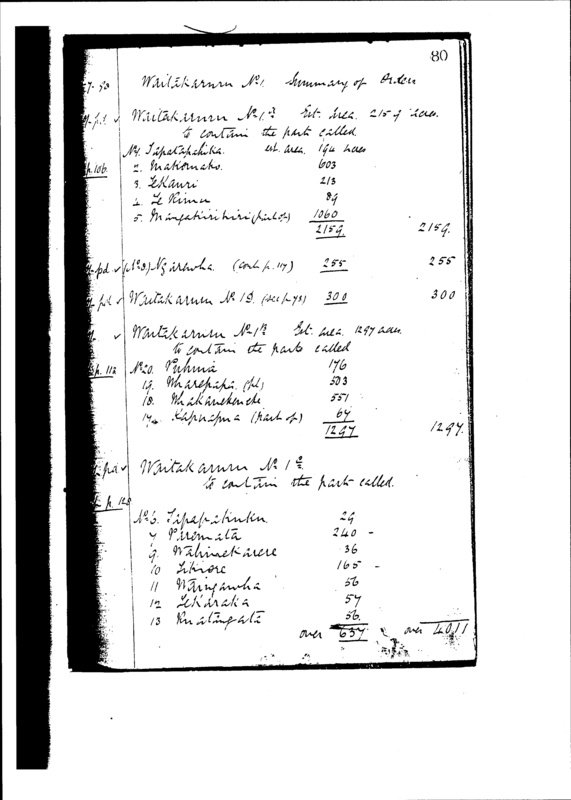 80
Waitakaruru No 1. Summary of Orders
Waitakaruru No 1A Est. Area. 2159 acres.
to contain the parts called
No 1. Tapatapahika. est. area. 194 acres
p. 106. 2. Makomako. 603
3. Te Kauri 213
4. Te Rimu 89
5. Mangatiritiri (part of) 1060
2159. 2159.
pd ✓ (No 8) Ngarewha. (cont p. 117) 255 255
pd ✓ Waitakaruru No 1D. (see p 78) 300 300
✓ Waitakaruru No 1B Est. area. 1297 acres.
to contain the parts called
p. 112 No 20. Puhina 176
19. Wharepapa. 503
18. Whakanekeneke 551
17. Kapuapua (part of) 67
1297 1297.
pd ✓ Waitakaruru No 1
to contain the parts called.
p. 128
No 6. 29
7 Paremata 240 -
9. Wahinekarere 36
10 Tikiore 165 -
11 Waingawha 56
12 Te Karaka 57
13 Ruatangata 56.
over 637 over 4011